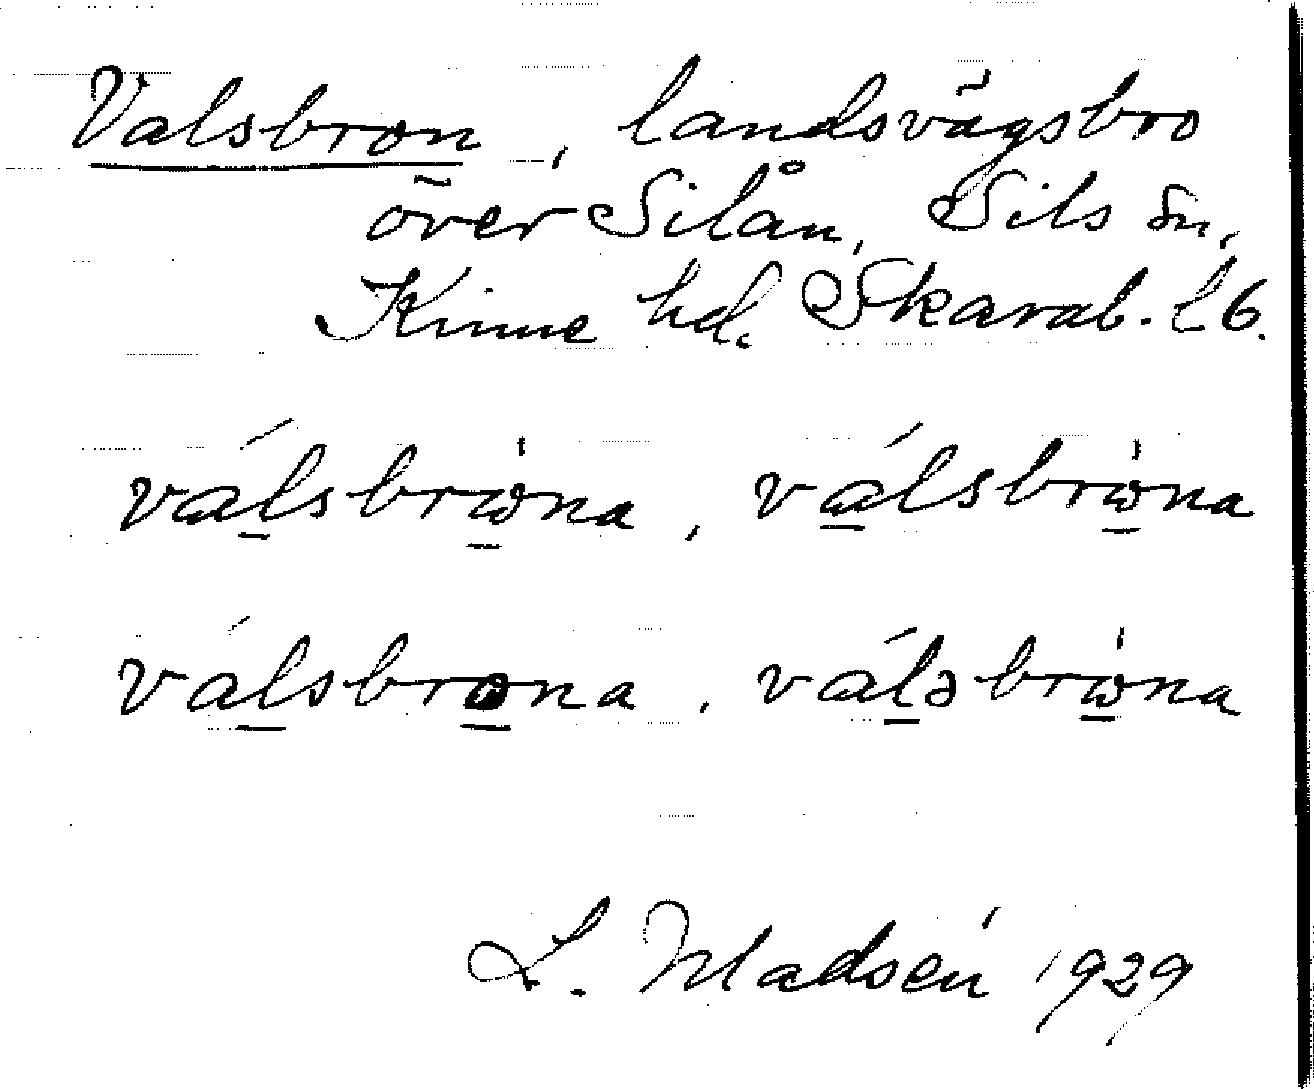 Valsbron, landsvägsbro
över Silån, Sils sn,
Kinne hd. Skarab. l 6.
válsbrω̇na, válsbrω̇na
válsbrona, váləbrω̇na
L. Madsén 1929